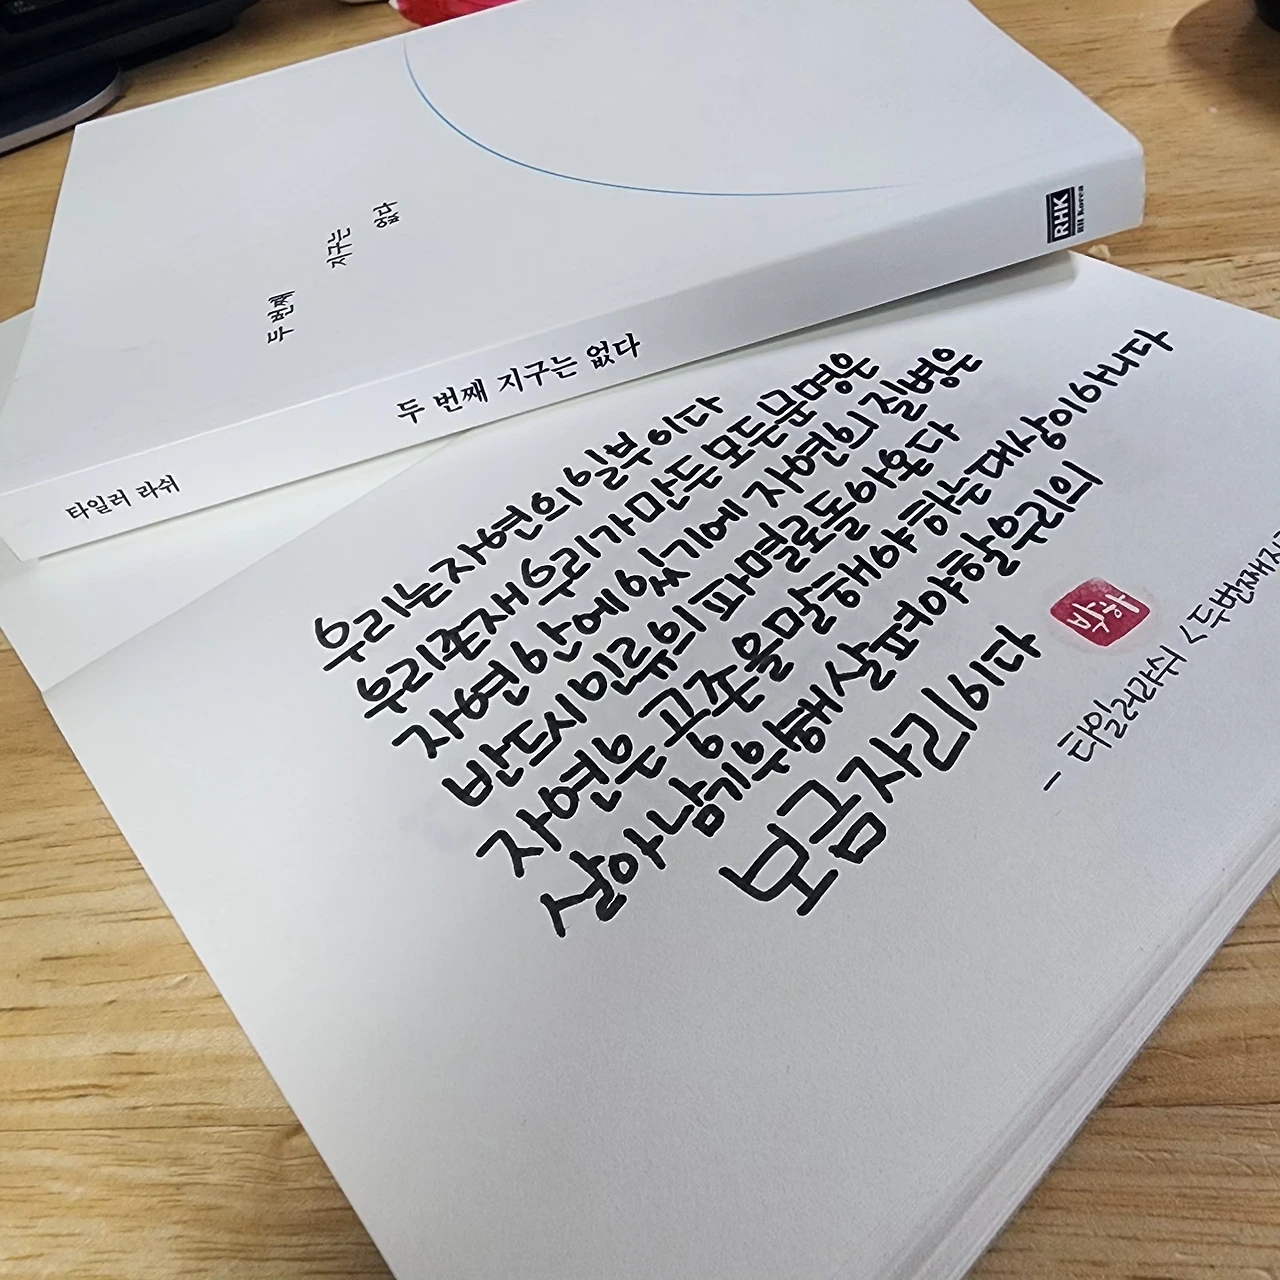 두 번째
지구는
없다
RHK
RH Korea
두 번째 지구는 없다
타일러 라쉬
우리는 자연의 일부이다
우리존재 우리가 만든 모든 문명은
자연 안에 있기에 자연의 질병은
반드시 인류의 파멸로 돌아온다
자연은 공존을 말해야 하는 대상이 아니다
살아남기 위해 살펴야 할 우리의
보금자리이다
박하
- 타일러라쉬 <두번째